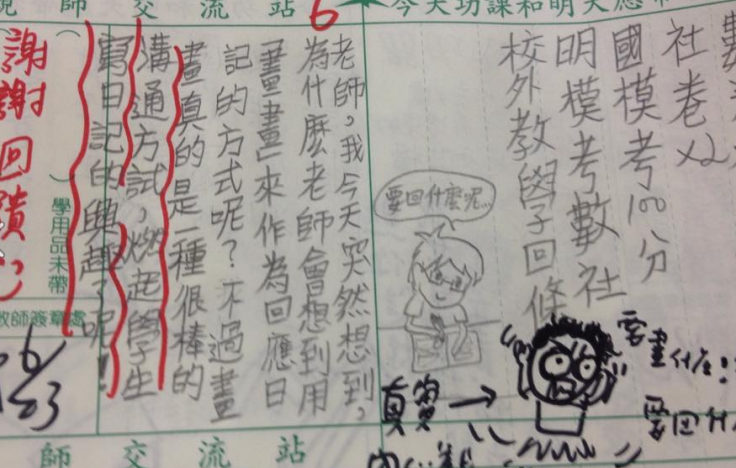 師交流站
6
今天功課和明天應
社卷x2
國模考100分
明模考數社
校外教學回條
要回什麼呢…
老師,我今天突然想到,
為什麼老師會想到用
「畫畫」來作為回應日
記的方式呢?不過畫
畫真的是一種很棒的
溝通方試,燃起學生
寫日記的興趣了呢!
學用品未帶
謝謝回饋
教師簽章處
6/
03
真實
要畫什么!
要回什
師交流站